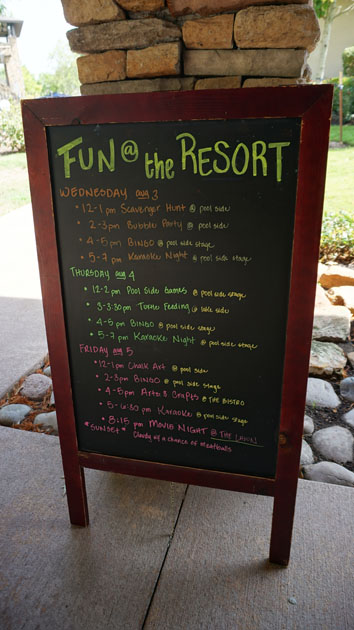 FUN @ the RESORT
WEDNESDAY aug 3
• 12-1 pm Scavenger Hunt @ pool side
• 2-3pm Bubble Party @ pool side
• 4-5pm BINGO @ pool side stage
• 5-7 pm Karaoke Night @ pool side stage
THURSDAY aug 4
• 12-2 pm Pool Side Games @ pool side stage
• 3-3:30pm Turtle Feeding @ lake side
• 4-5 pm BINGO @ pool side stage
• 5-7 pm Karaoke Night @ pool side stage
FRIDAY aug 5
• 12-1pm Chalk Art @ pool side
• 2-3pm BINGO @ pool side stage
• 4-5pm Arts & Crafts @ THE BISTRO
• 5-6:30 pm Karaoke @ pool side stage
• 8:15 pm MOVIE NIGHT @ THE LAWN
*SUNSET* Cloudy w/ a chance of meatballs